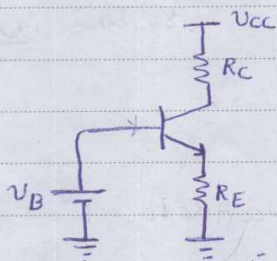 VCC
RC
VB
RE